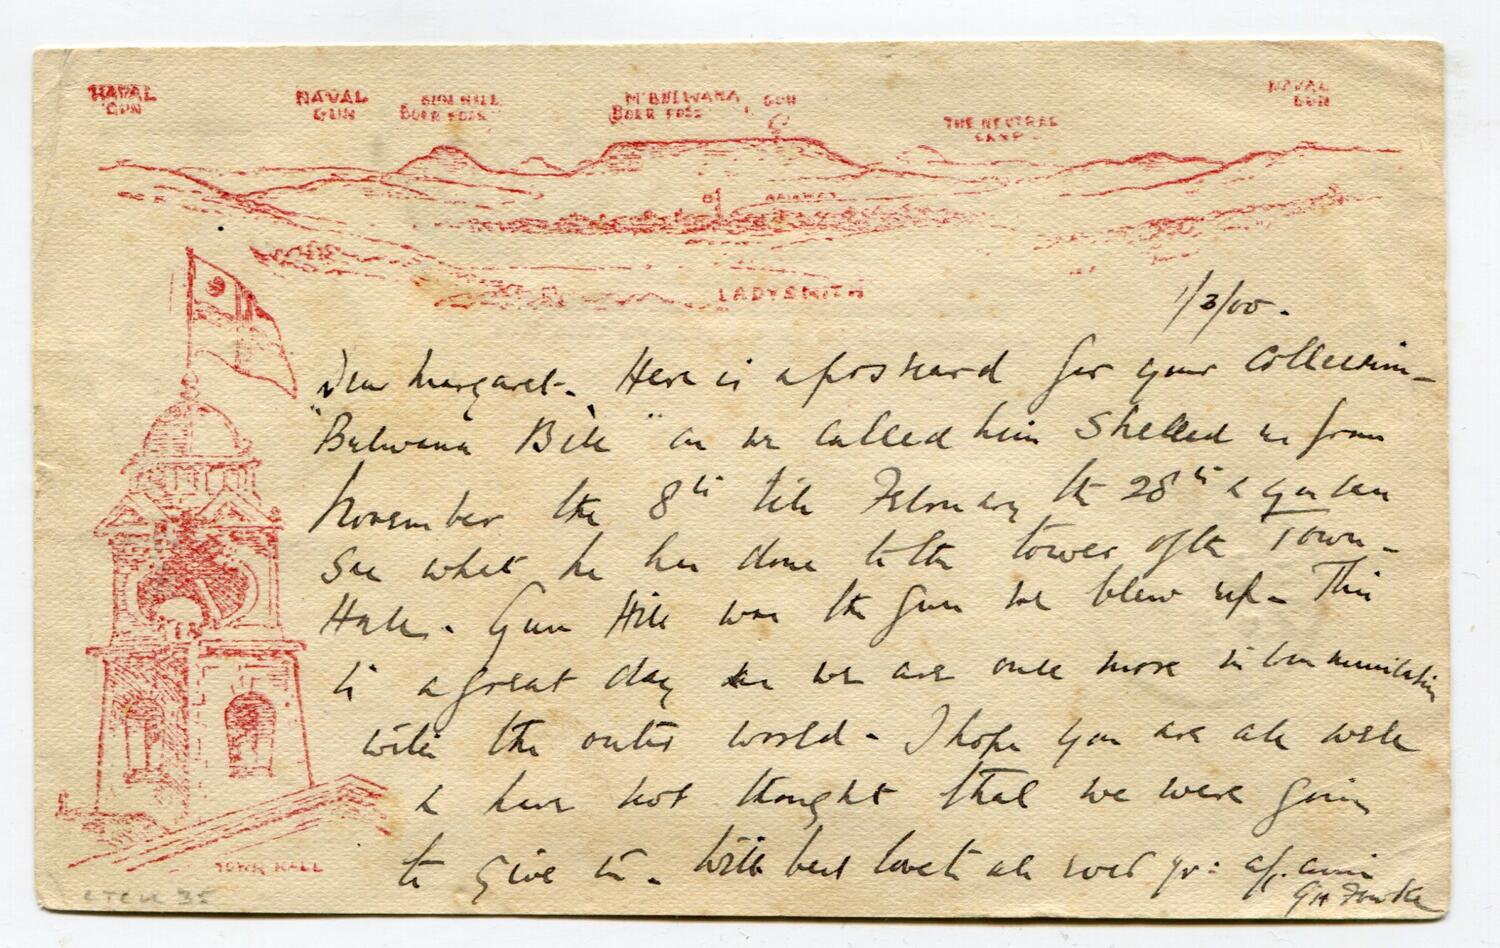 NAVAL GUN
NAVAL GUN
GUN HILL BOER POSN
M'BULWANA, GUN
BOER POSN
THE NEUTRAL CAMP
NAVAL GUN
RAILWAY
LADYSMITH
1/3/00.
Dear Margaret. Here is a postcard for your collection -
"Bulwana Bill" as we called him shelled us from
November the 8th till February the 28th & you can
see what he has done to the tower of the Town-
Hall. Gun Hill was the gun we blew up. This
is a great day as we are once more in communication
with the outer world. I hope you are all well
& have not thought that we were going
to give in. With best love to all yr: aff.
GH Fowke
TOWN HALL